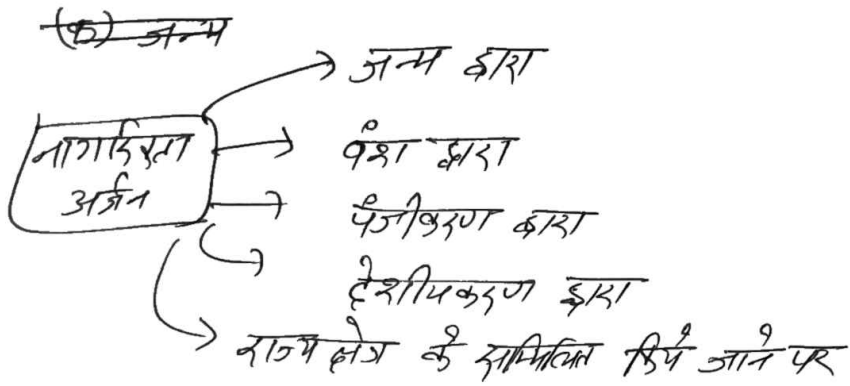 (क) जन्म
जन्म द्वारा
नागरिकता
अर्जन
वंश द्वारा
पंजीकरण द्वारा
देशीयकरण द्वारा
राज्य क्षेत्र के सम्मिलित किये जाने पर